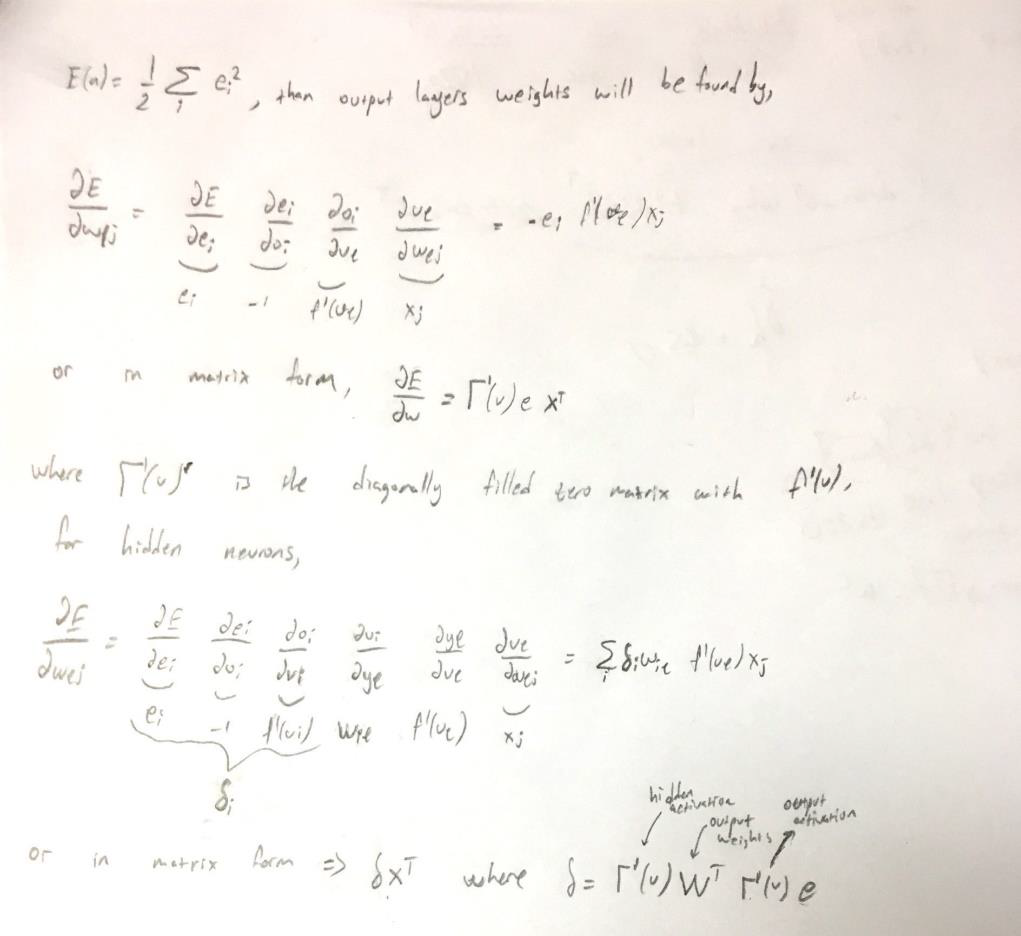 E(n) = 1/2 Σ_i e_i², then output layers weights will be found by,
∂E/∂w_ej = ∂E/∂e_i ∂e_i/∂o_i ∂o_i/∂v_e ∂v_e/∂w_ej = -e_i f'(v_e)x_j
e_i -1 f'(v_e) x_j
or in matrix form, ∂E/∂w = Γ'(v) e x^T
where Γ'(v) is the diagonally filled zero matrix with f'(v),
for hidden neurons,
∂E/∂w_ej = ∂E/∂e_i ∂e_i/∂o_i ∂o_i/∂v_i ∂v_i/∂y_e ∂y_e/∂v_e ∂v_e/∂w_ej = Σ_i δ_i w_ie f'(v_e) x_j
e_i -1 f'(v_i) w_ie f'(v_e) x_j
δ_i
hidden activation
output weights
output activation
or in matrix form ⇒ δx^T where δ = Γ'(v) W^T Γ'(v) e